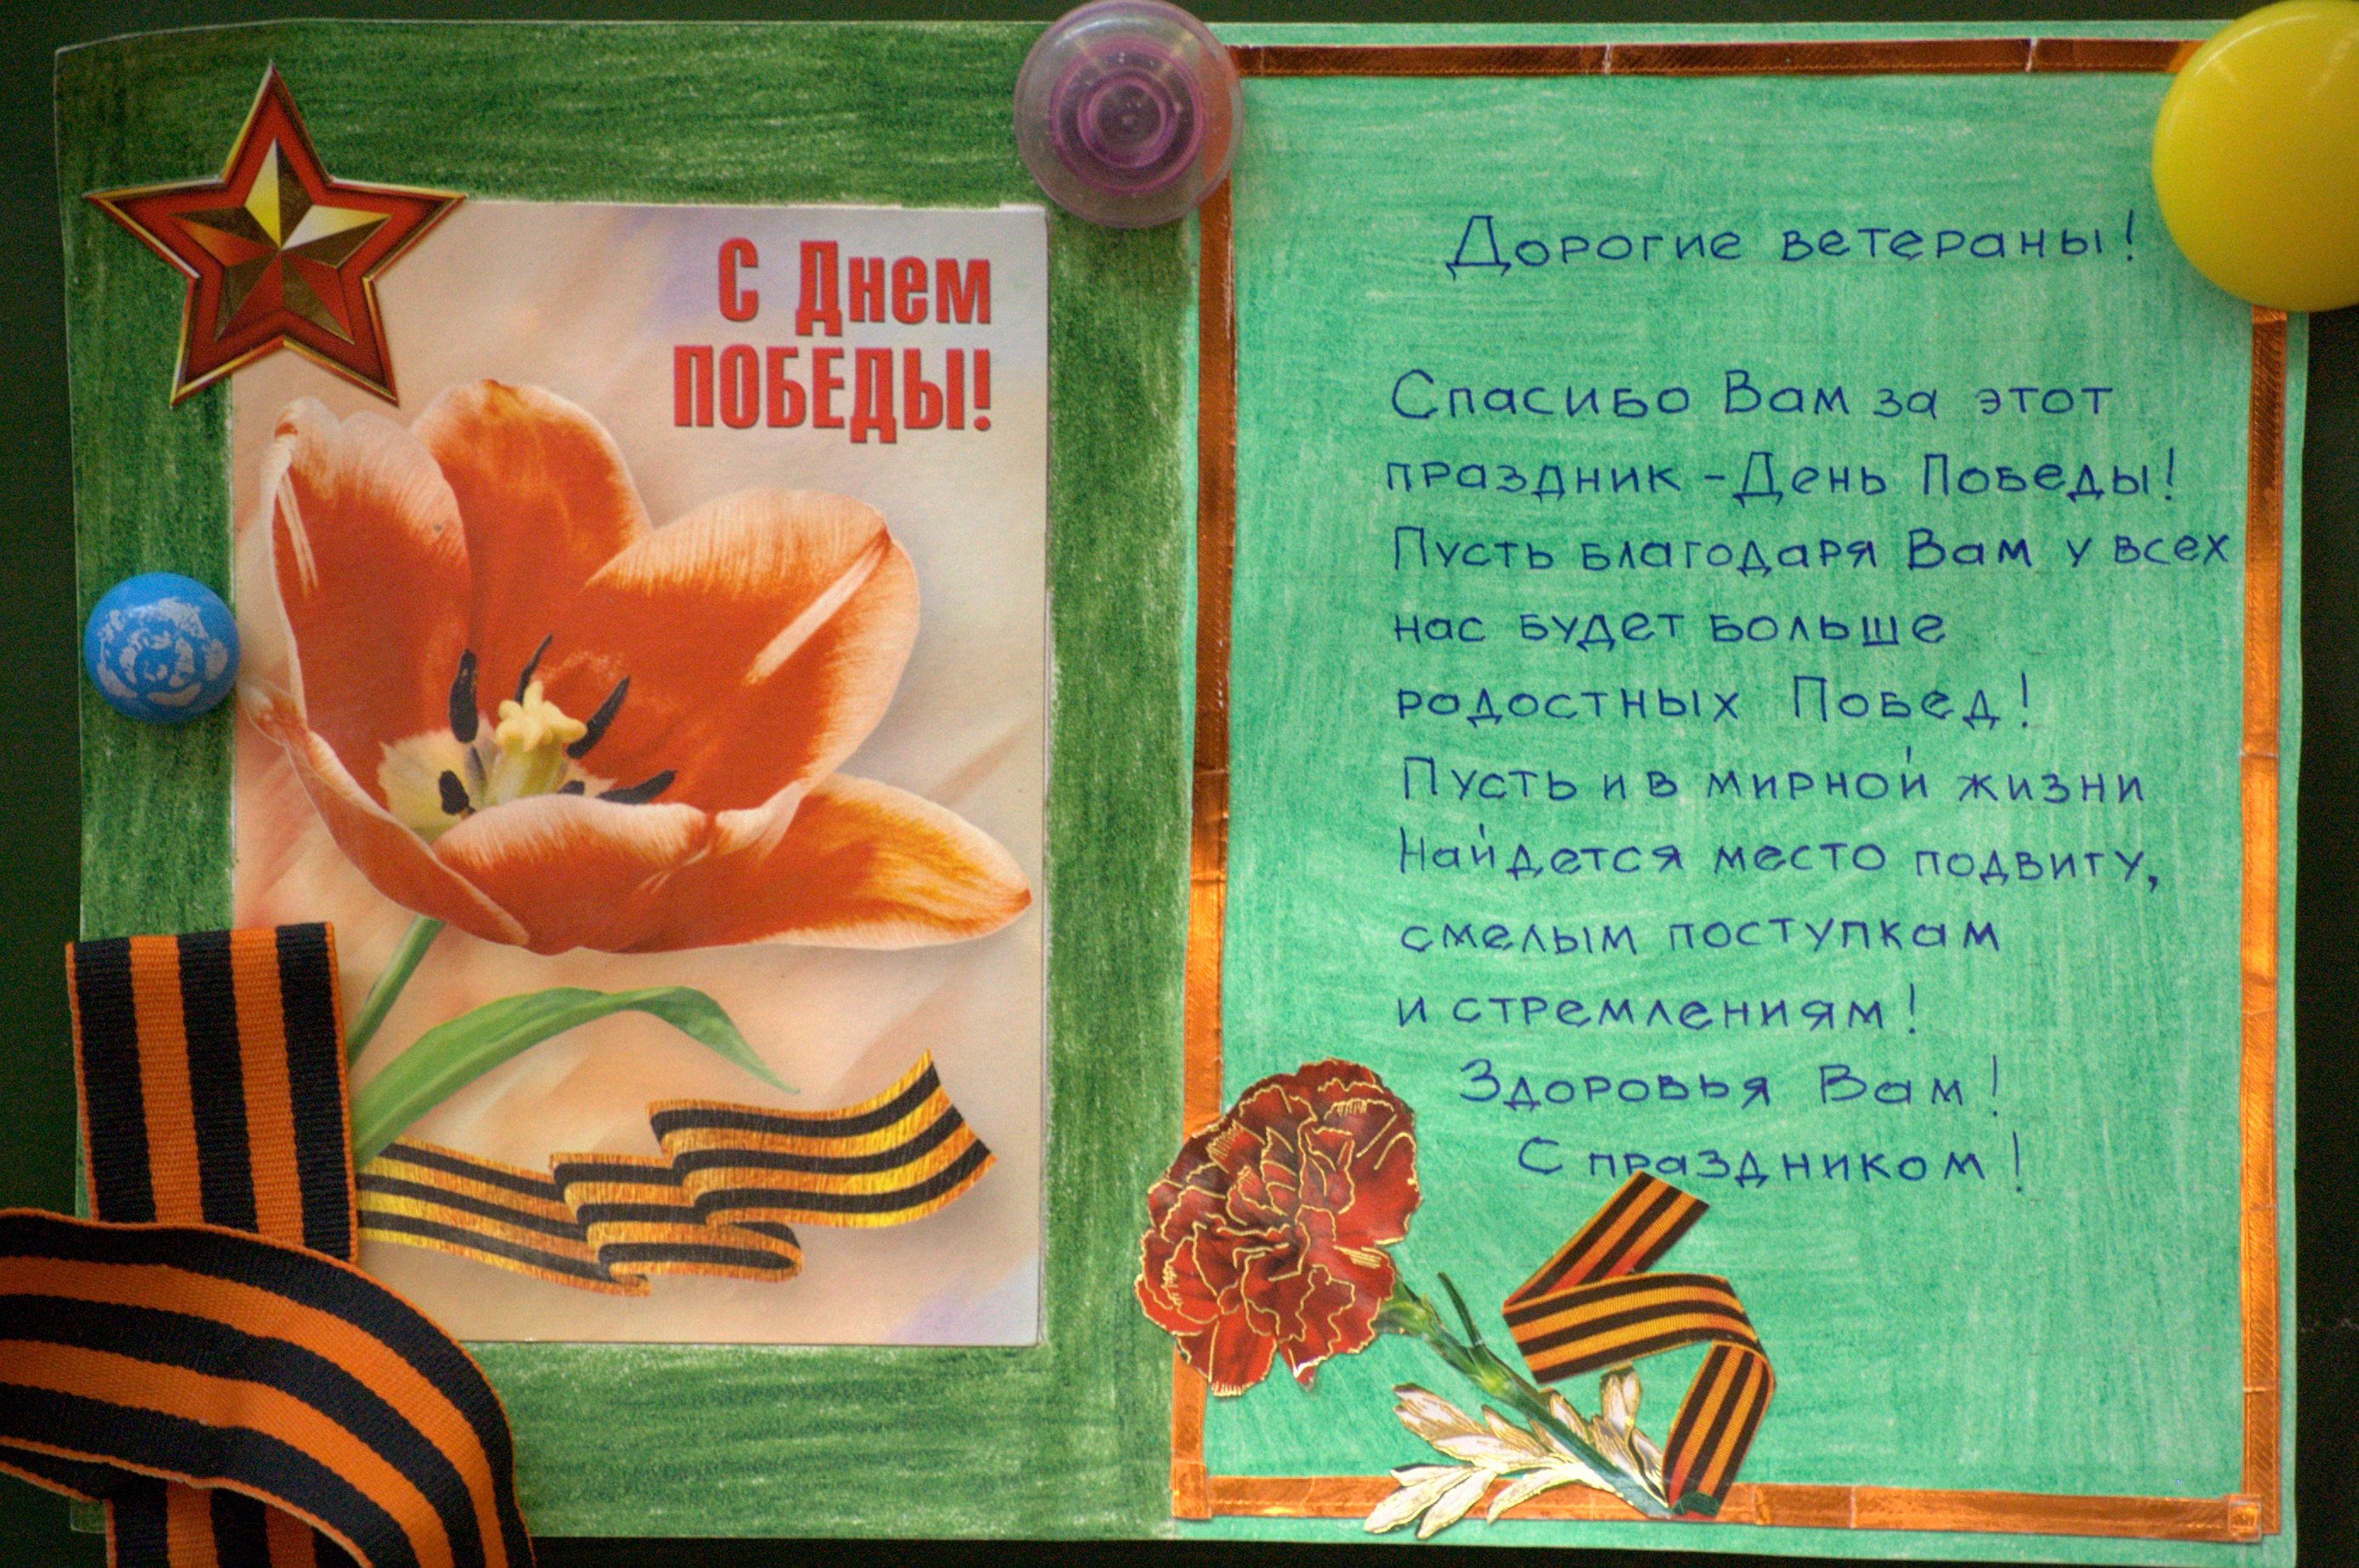 С Днем
ПОБЕДЫ!
Дорогие ветераны!
Спасибо Вам за этот
праздник - День Победы!
Пусть благодаря Вам у всех
нас будет больше
родостных Побед!
Пусть и в мирной жизни
Найдется место подвигу,
смелым поступкам
и стремлениям!
Здоровья Вам!
С праздником!